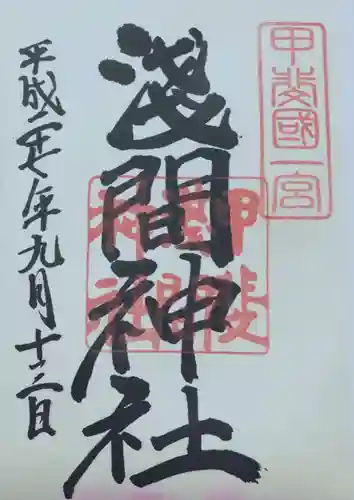 甲斐國一宮
淺間神社
平成二十七年九月十二日